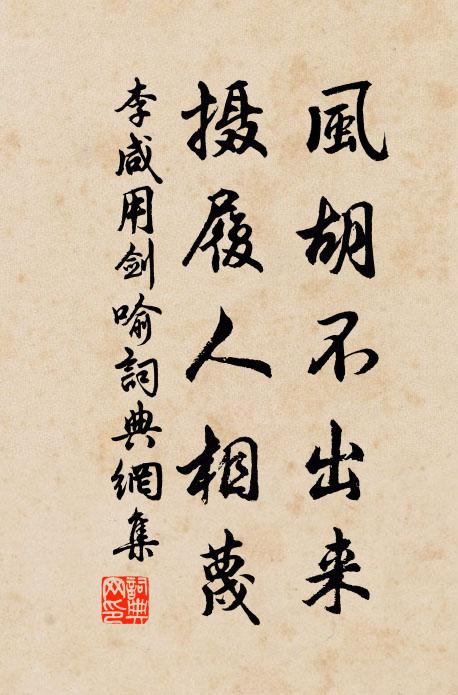 風胡不出来
摄履人相蔑
李咸用剑喻詞典網集
詞典网印